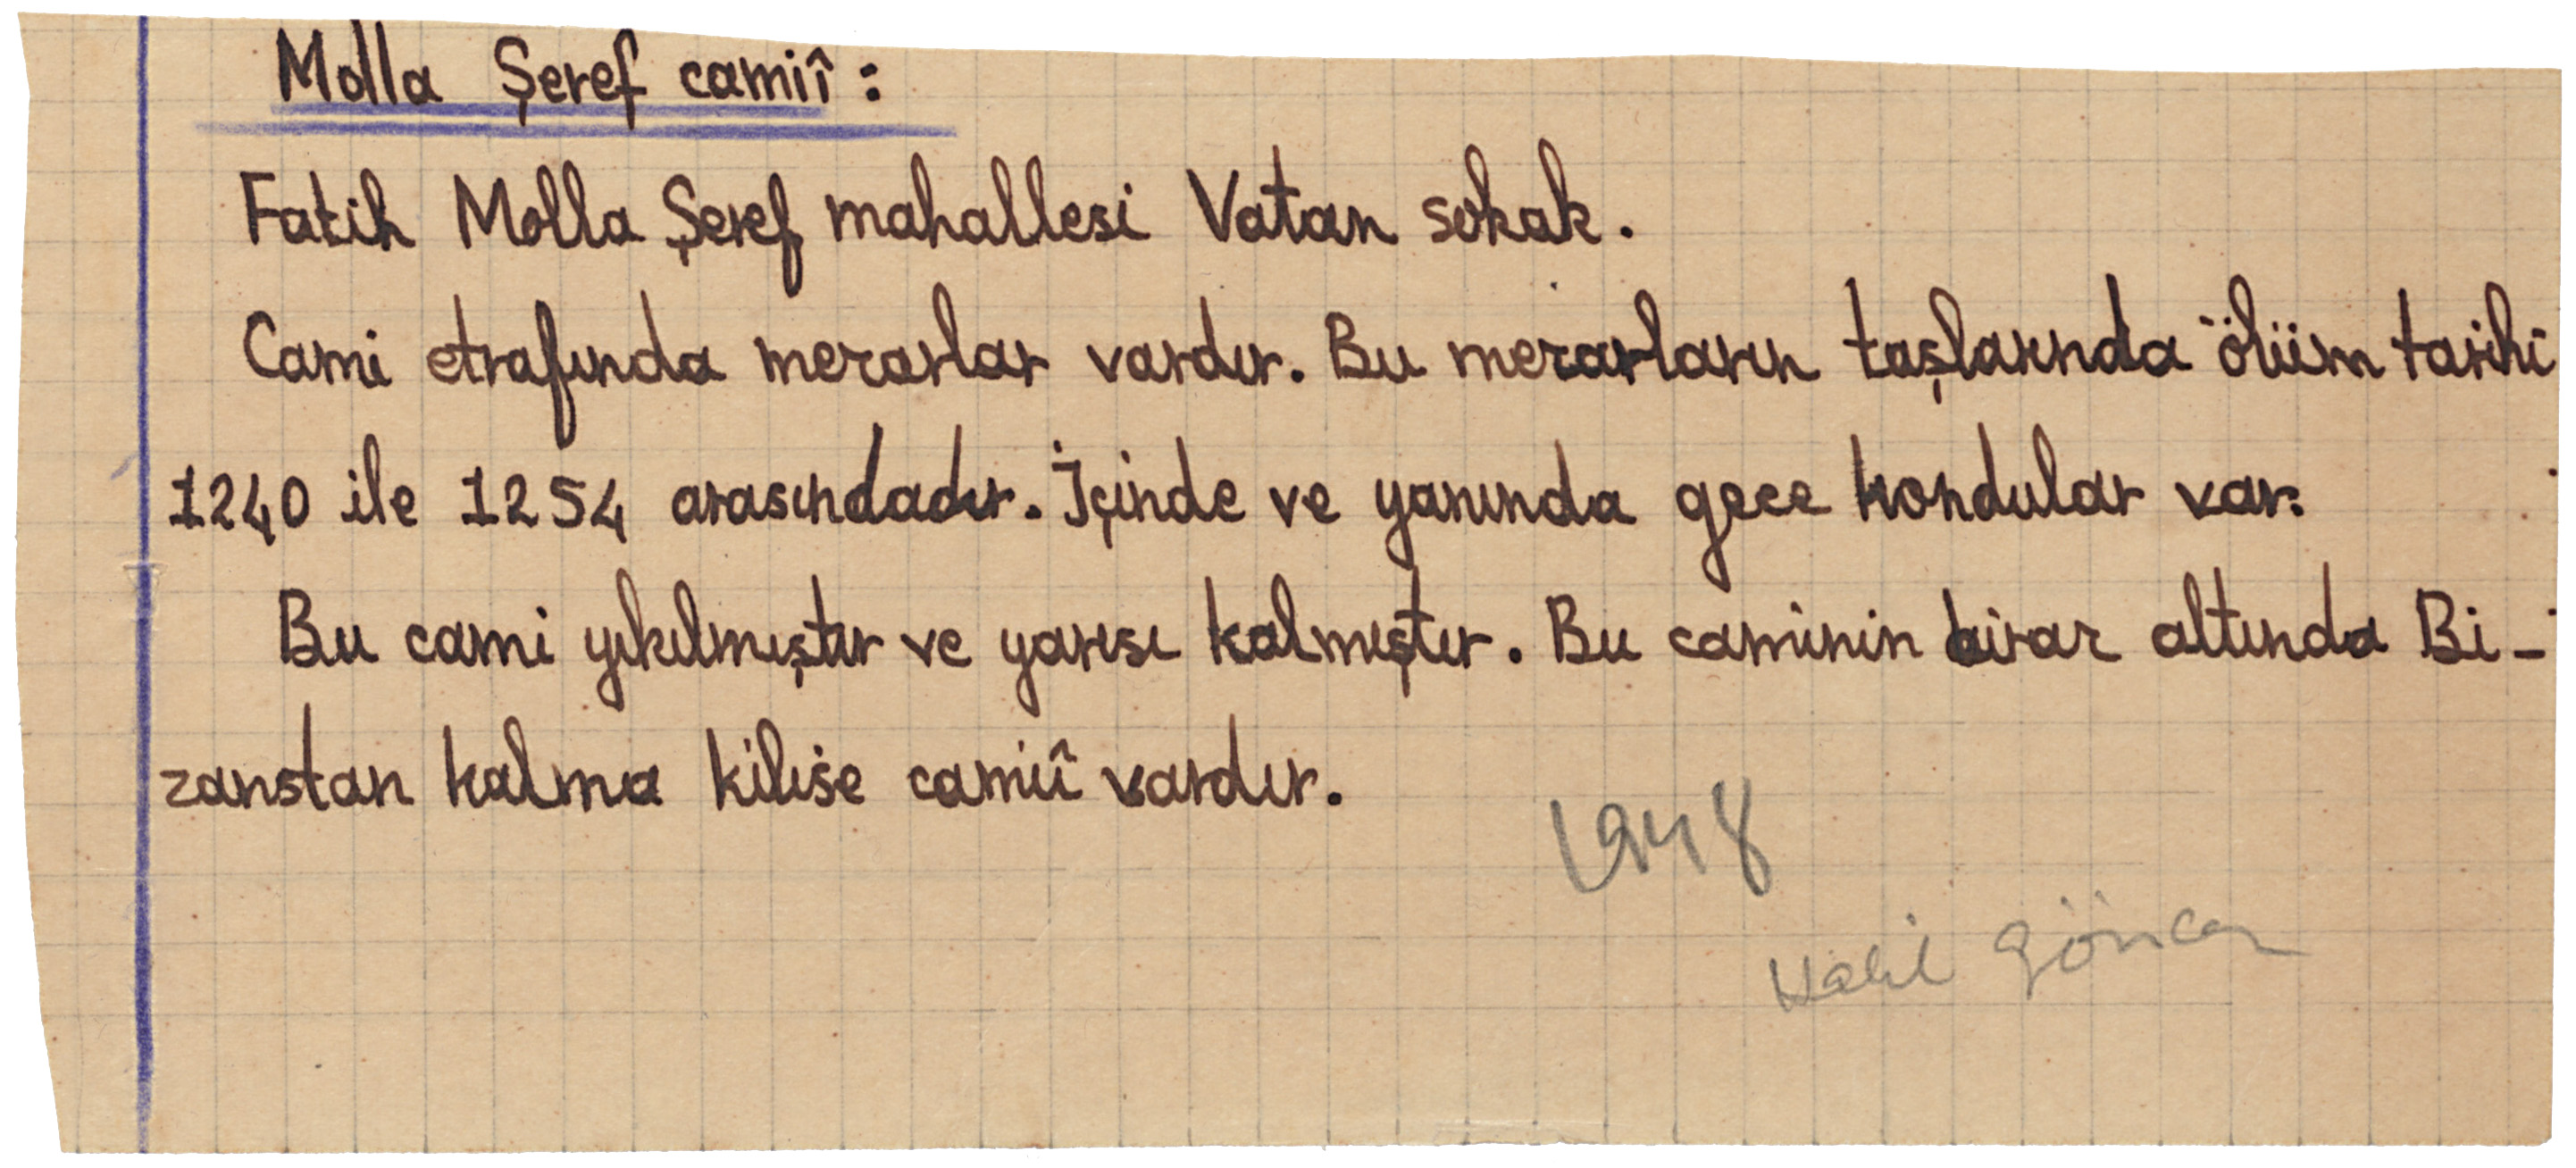 Molla Şeref camiî :
Fatih Molla Şeref mahallesi Vatan sokak.
Cami etrafında mezarlar vardır. Bu mezarların taşlarında ölüm tarihi
1240 ile 1254 arasındadır. İçinde ve yanında gece kondular var.
Bu cami yıkılmıştır ve yarısı kalmıştır. Bu caminin biraz altında Bi-
zanstan kalma kilise camiî vardır.
1948
Halil Göncer